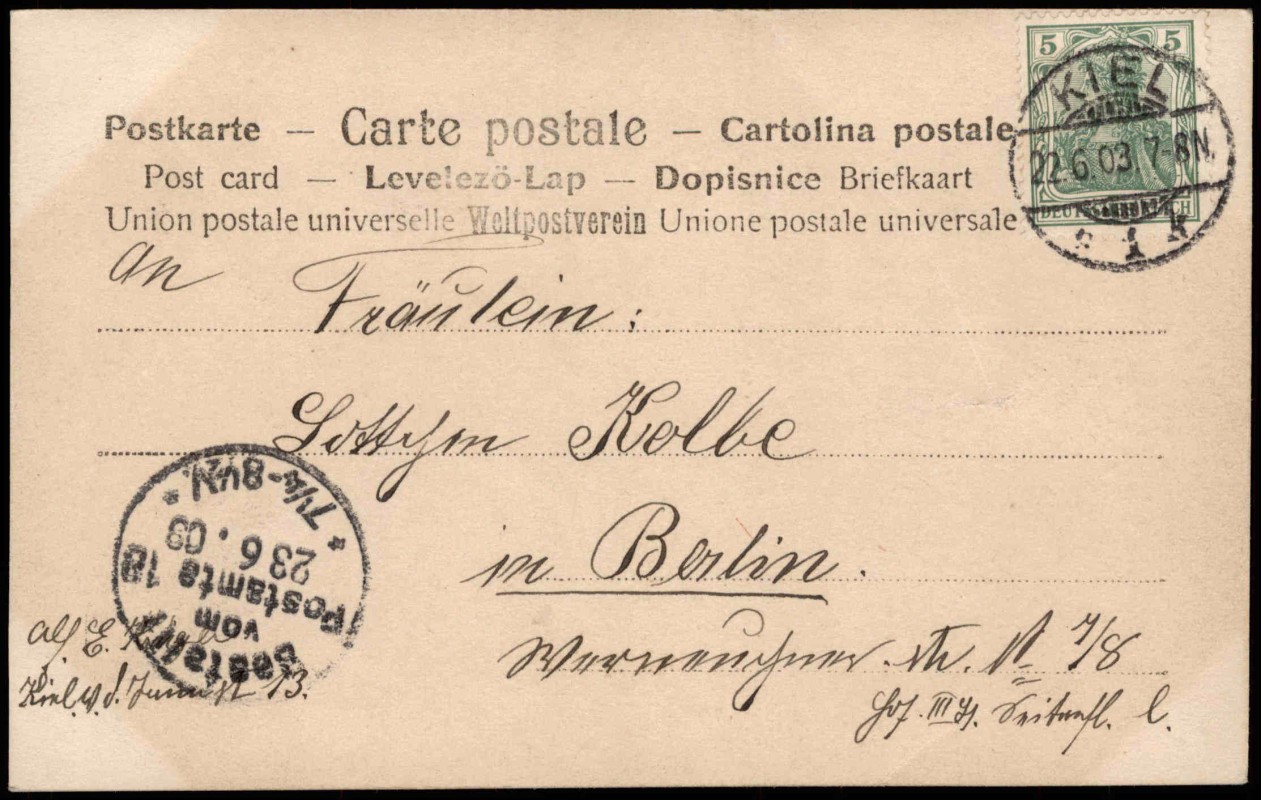 Postkarte — Carte postale — Cartolina postale
Post card — Levelezö-Lap — Dopisnice Briefkaart
Union postale universelle Weltpostverein Unione postale universale
5 5
DEUTSCHES REICH
KIEL
22.6.03. 7-8N.
* 1 k
An
Fräulein:
Lottchen Kolbe
in Berlin.
Werneuchner. str. N 7/8
Hof. III Seitenfl. l.
Bestellt
vom
Postamte 18
23 6. 03
7¼-8½N.
E.
Kiel. 13.